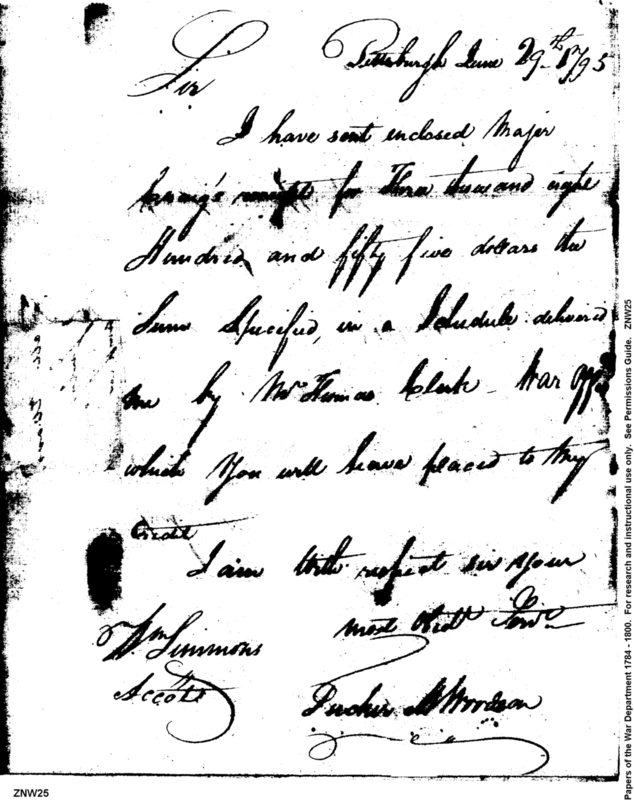 Pittsburgh June 29th 1795
Sir
I have sent enclosed Major
receipt for Three thousand eight
Hundred and fifty five dollars the
Sum Specifed, in a Schedule delivered
me by Mr Thomas Clerk War Office
which You will have placed to My
Credit
I am With respect sir your
most Obdt Servt
Wm Simmons
Acctt
Tucker M Woodson
Papers of the War Department 1784 - 1800. For research and instructional use only. See Permissions Guide. ZNW25
ZNW25